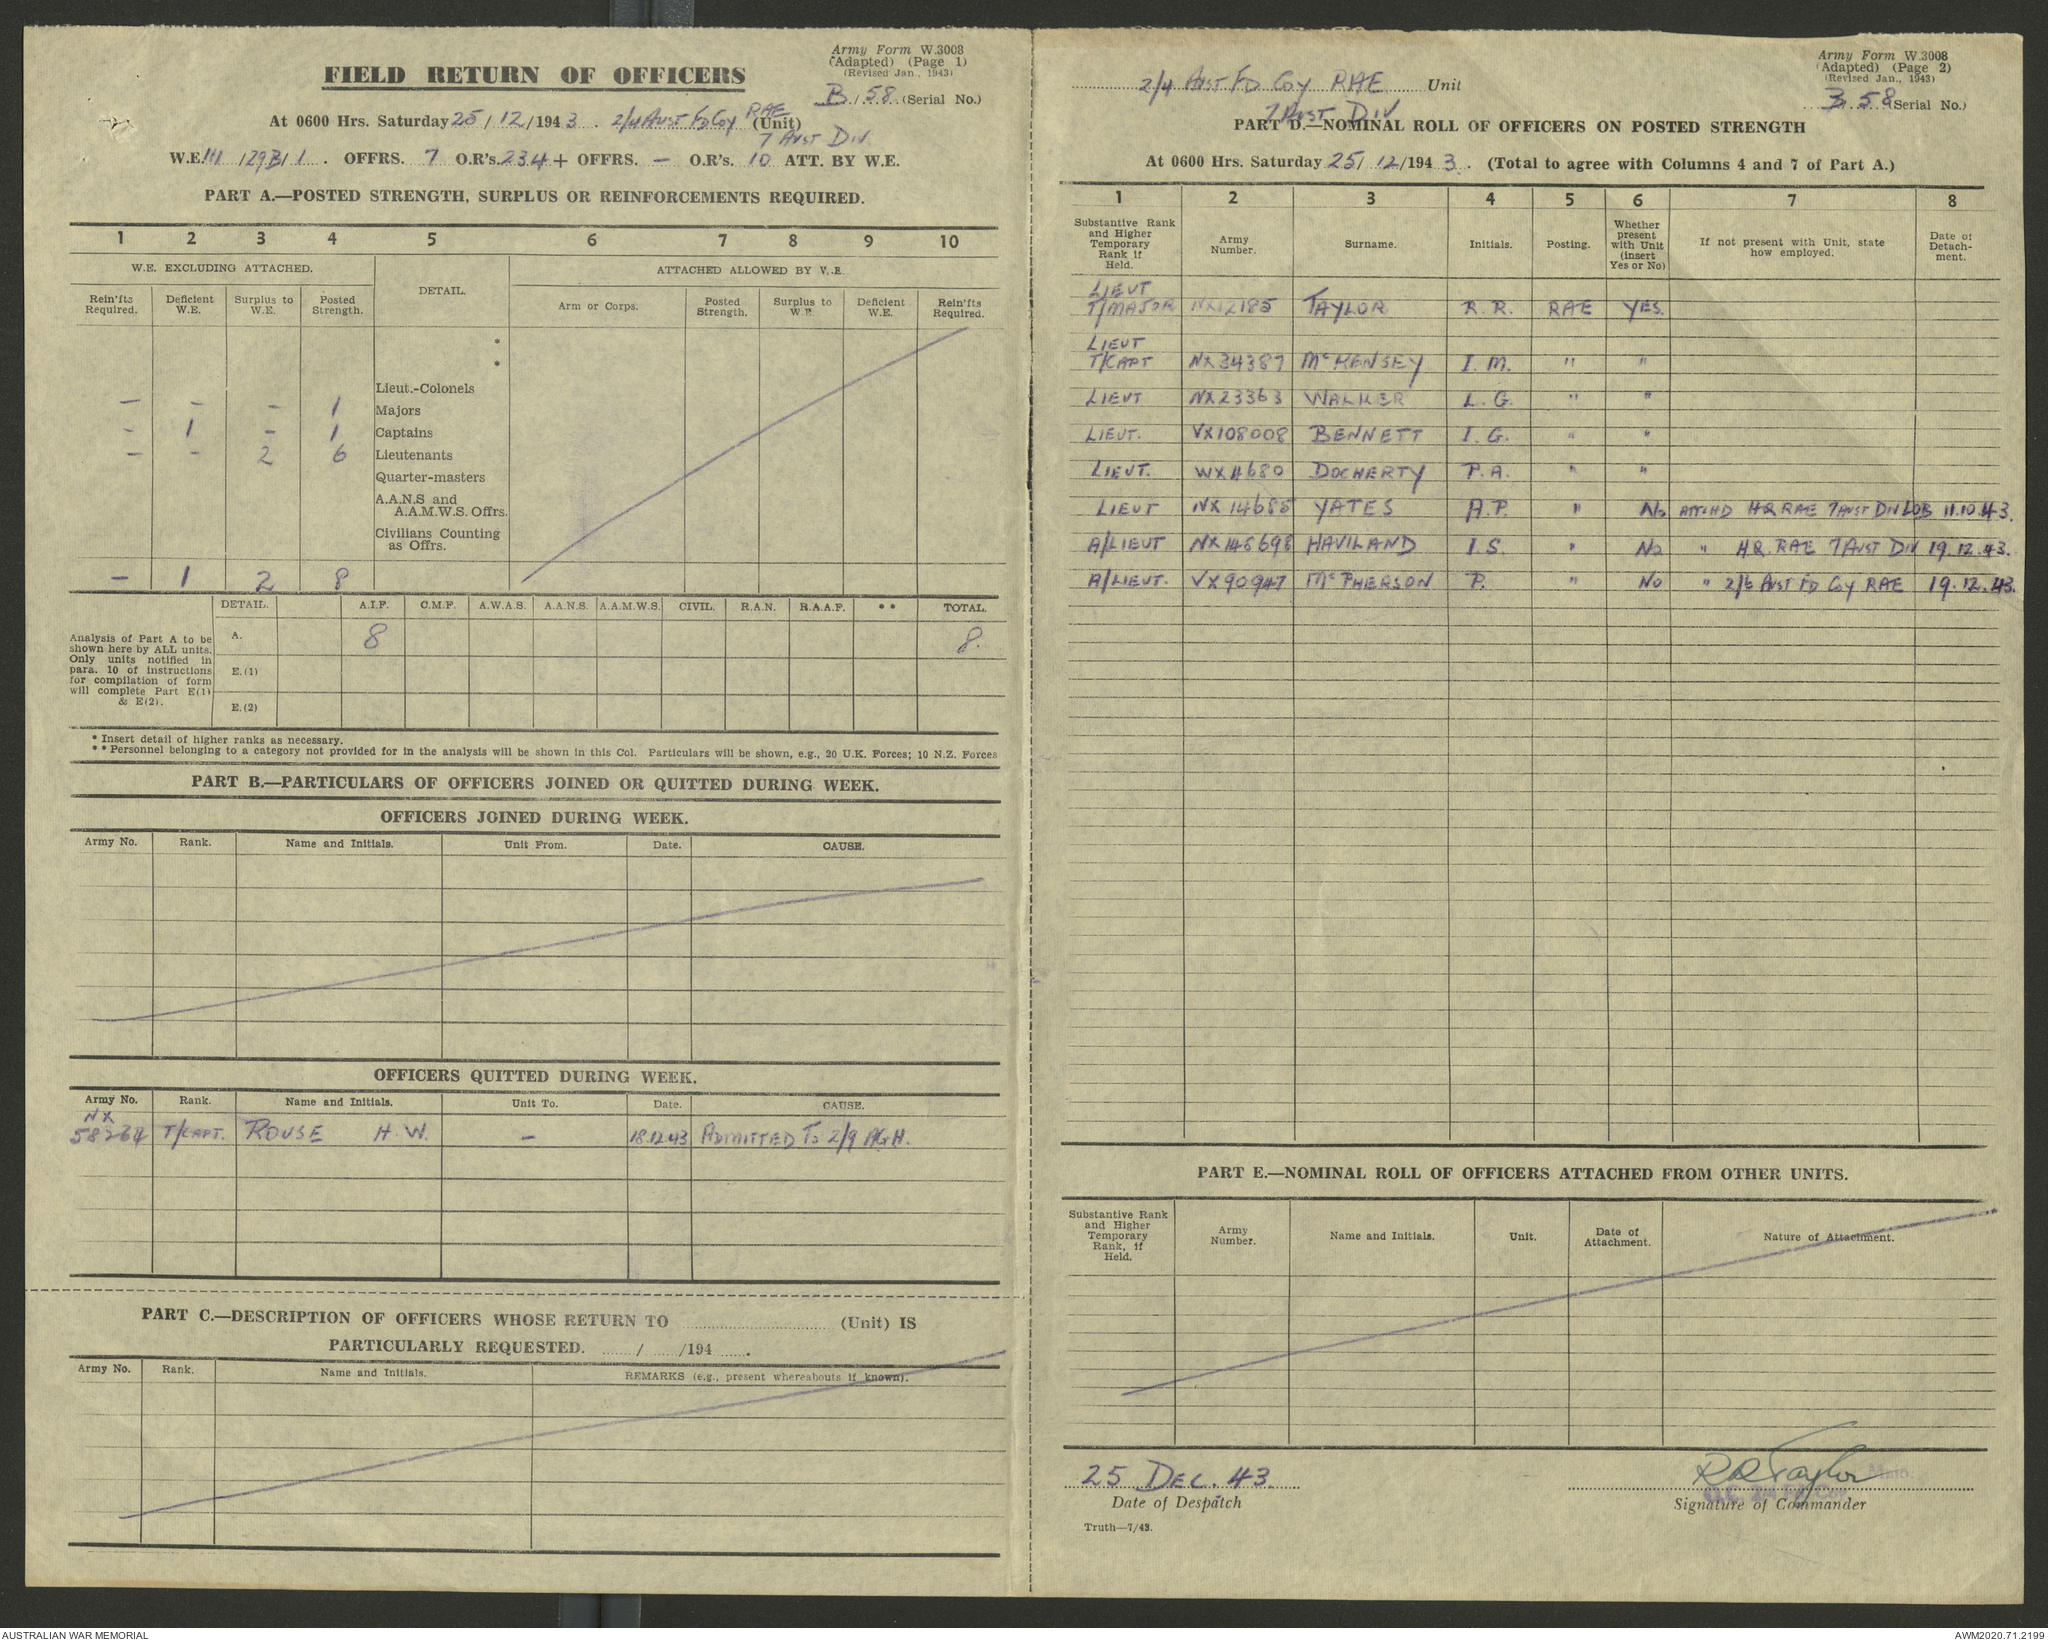 Army Form W.3008
(Adapted) (Page 1)
(Revised Jan., 1943)
FIELD RETURN OF OFFICERS
B / 58 (Serial No.)
At 0600 Hrs. Saturday 25 / 12 / 1943. 2/4 AUST FD COY RAE (Unit)
7 AUST DIV.
W.E. III /29B/ 1. OFFRS. 7 O.R's. 234 + OFFRS. — O.R's. 10 ATT. BY W.E.
PART A.—POSTED STRENGTH, SURPLUS OR REINFORCEMENTS REQUIRED.
1 2 3 4 5 6 7 8 9 10
W.E. EXCLUDING ATTACHED. DETAIL. ATTACHED ALLOWED BY W.E.
Rein'fts Required. Deficient W.E. Surplus to W.E. Posted Strength. Arm or Corps. Posted Strength. Surplus to W.E. Deficient W.E. Rein'fts Required.
*
*
Lieut.-Colonels
— — — 1 Majors
— 1 — 1 Captains
— — 2 6 Lieutenants
Quarter-masters
A.A.N.S and
A.A.M.W.S. Offrs.
Civilians Counting
as Offrs.
— 1 2 8
DETAIL. A.I.F. C.M.F. A.W.A.S. A.A.N.S. A.A.M.W.S. CIVIL. R.A.N. R.A.A.F. ** TOTAL.
Analysis of Part A to be
shown here by ALL units.
Only units notified in
para. 10 of instructions
for compilation of form
will complete Part E(1)
& E(2).
A. 8 8.
E.(1)
E.(2)
* Insert detail of higher ranks as necessary.
** Personnel belonging to a category not provided for in the analysis will be shown in this Col. Particulars will be shown, e.g., 20 U.K. Forces; 10 N.Z. Forces
PART B.—PARTICULARS OF OFFICERS JOINED OR QUITTED DURING WEEK.
OFFICERS JOINED DURING WEEK.
Army No. Rank. Name and Initials. Unit From. Date. CAUSE.
OFFICERS QUITTED DURING WEEK.
Army No. Rank. Name and Initials. Unit To. Date. CAUSE.
NX
58264 T/CAPT. ROUSE H.W. — 18.12.43 ADMITTED TO 2/9 AGH.
PART C.—DESCRIPTION OF OFFICERS WHOSE RETURN TO (Unit) IS
PARTICULARLY REQUESTED. / /194 .
Army No. Rank. Name and Initials. REMARKS (e.g., present whereabouts if known).
Army Form W.3008
(Adapted) (Page 2)
(Revised Jan., 1943)
2/4 AUST FD COY RAE Unit
B 58 (Serial No.)
7 AUST DIV
PART D.—NOMINAL ROLL OF OFFICERS ON POSTED STRENGTH
At 0600 Hrs. Saturday 25/ 12 /1943. (Total to agree with Columns 4 and 7 of Part A.)
1 2 3 4 5 6 7 8
Substantive Rank and Higher Temporary Rank if Held. Army Number. Surname. Initials. Posting. Whether present with Unit (insert Yes or No) If not present with Unit, state how employed. Date of Detachment.
LIEUT
T/MAJOR NX12185 TAYLOR R.R. RAE YES.
LIEUT
T/CAPT NX34387 McKENSEY I.M. " "
LIEUT NX23363 WALKER L.G. " "
LIEUT. VX108008 BENNETT I.G. " "
LIEUT. WX4680 DOCHERTY P.A. " "
LIEUT NX14685 YATES A.P. " No ATTCHD HQ RAE 7 AUST DIV LOB 11.10.43.
A/LIEUT NX148698 HAVILAND I.S. " No " HQ. RAE 7 AUST DIV 19.12.43.
A/LIEUT. VX90947 McPHERSON P. " No " 2/6 AUST FD COY RAE 19.12.43.
PART E.—NOMINAL ROLL OF OFFICERS ATTACHED FROM OTHER UNITS.
Substantive Rank and Higher Temporary Rank, if Held. Army Number. Name and Initials. Unit. Date of Attachment. Nature of Attachment.
25 DEC. 43.
Date of Despatch
RRTaylor Major
O.C. 2/4 Fd. Coy
Signature of Commander
Truth—7/43.
AUSTRALIAN WAR MEMORIAL
AWM2020.71.2199